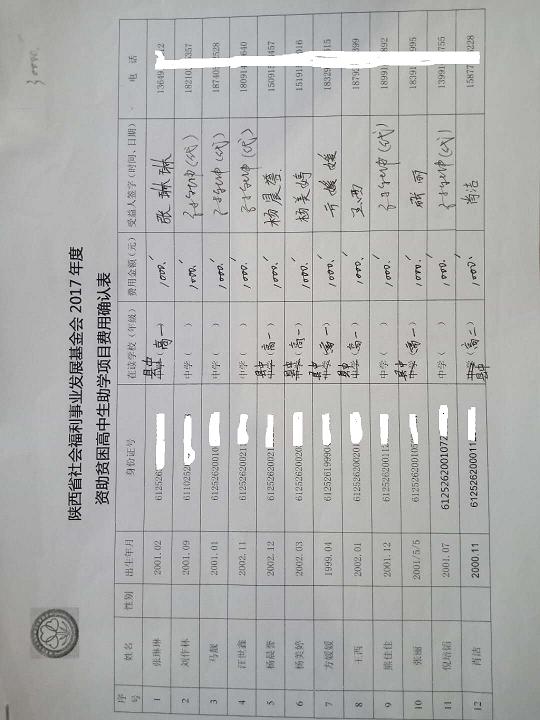 3000.
陕西省社会福利事业发展基金会 2017 年度
资助贫困高中生助学项目费用确认表
序号 姓名 性别 出生年月 身份证号 在读学校（年级） 费用金额（元） 受益人签字（时间、日期） 电 话
1 张琳琳 2001.02 6125262 县中（高一） 1000. 张琳琳 13649 12
2 刘作林 2001.09 61102520 中学（ ） 1000. （代） 18210 5357
3 马靓 2001.01 61252620010 中学（ ） 1000. （代） 18740 2528
4 汪世鑫 2002.11 612526200211 中学（ ） 1000. （代） 18091 640
5 杨晨誉 2002.12 6125262002 县中（高一） 1000. 杨晨誉 15091 457
6 杨美婷 2002.03 612526200203 县中（高一） 1000. 杨美婷 15191 016
7 方媛媛 1999.04 6125261999 县中（高一） 1000. 方媛媛 18329 615
8 王西 2002.01 61252620020 中学（ ） 1000. 王西 1879 399
9 熊佳佳 2001.12 612526200112 中学（ ） 1000. （代） 18991 892
10 张丽 2001/5/5 61252620010 县中（高一） 1000. 18391 995
11 倪培韬 2001.07 6125262001072 中学（ ） 1000. （代） 13991 755
12 肖洁 2000.11 612526200011 县中（高二） 1000. 肖洁 15877 228